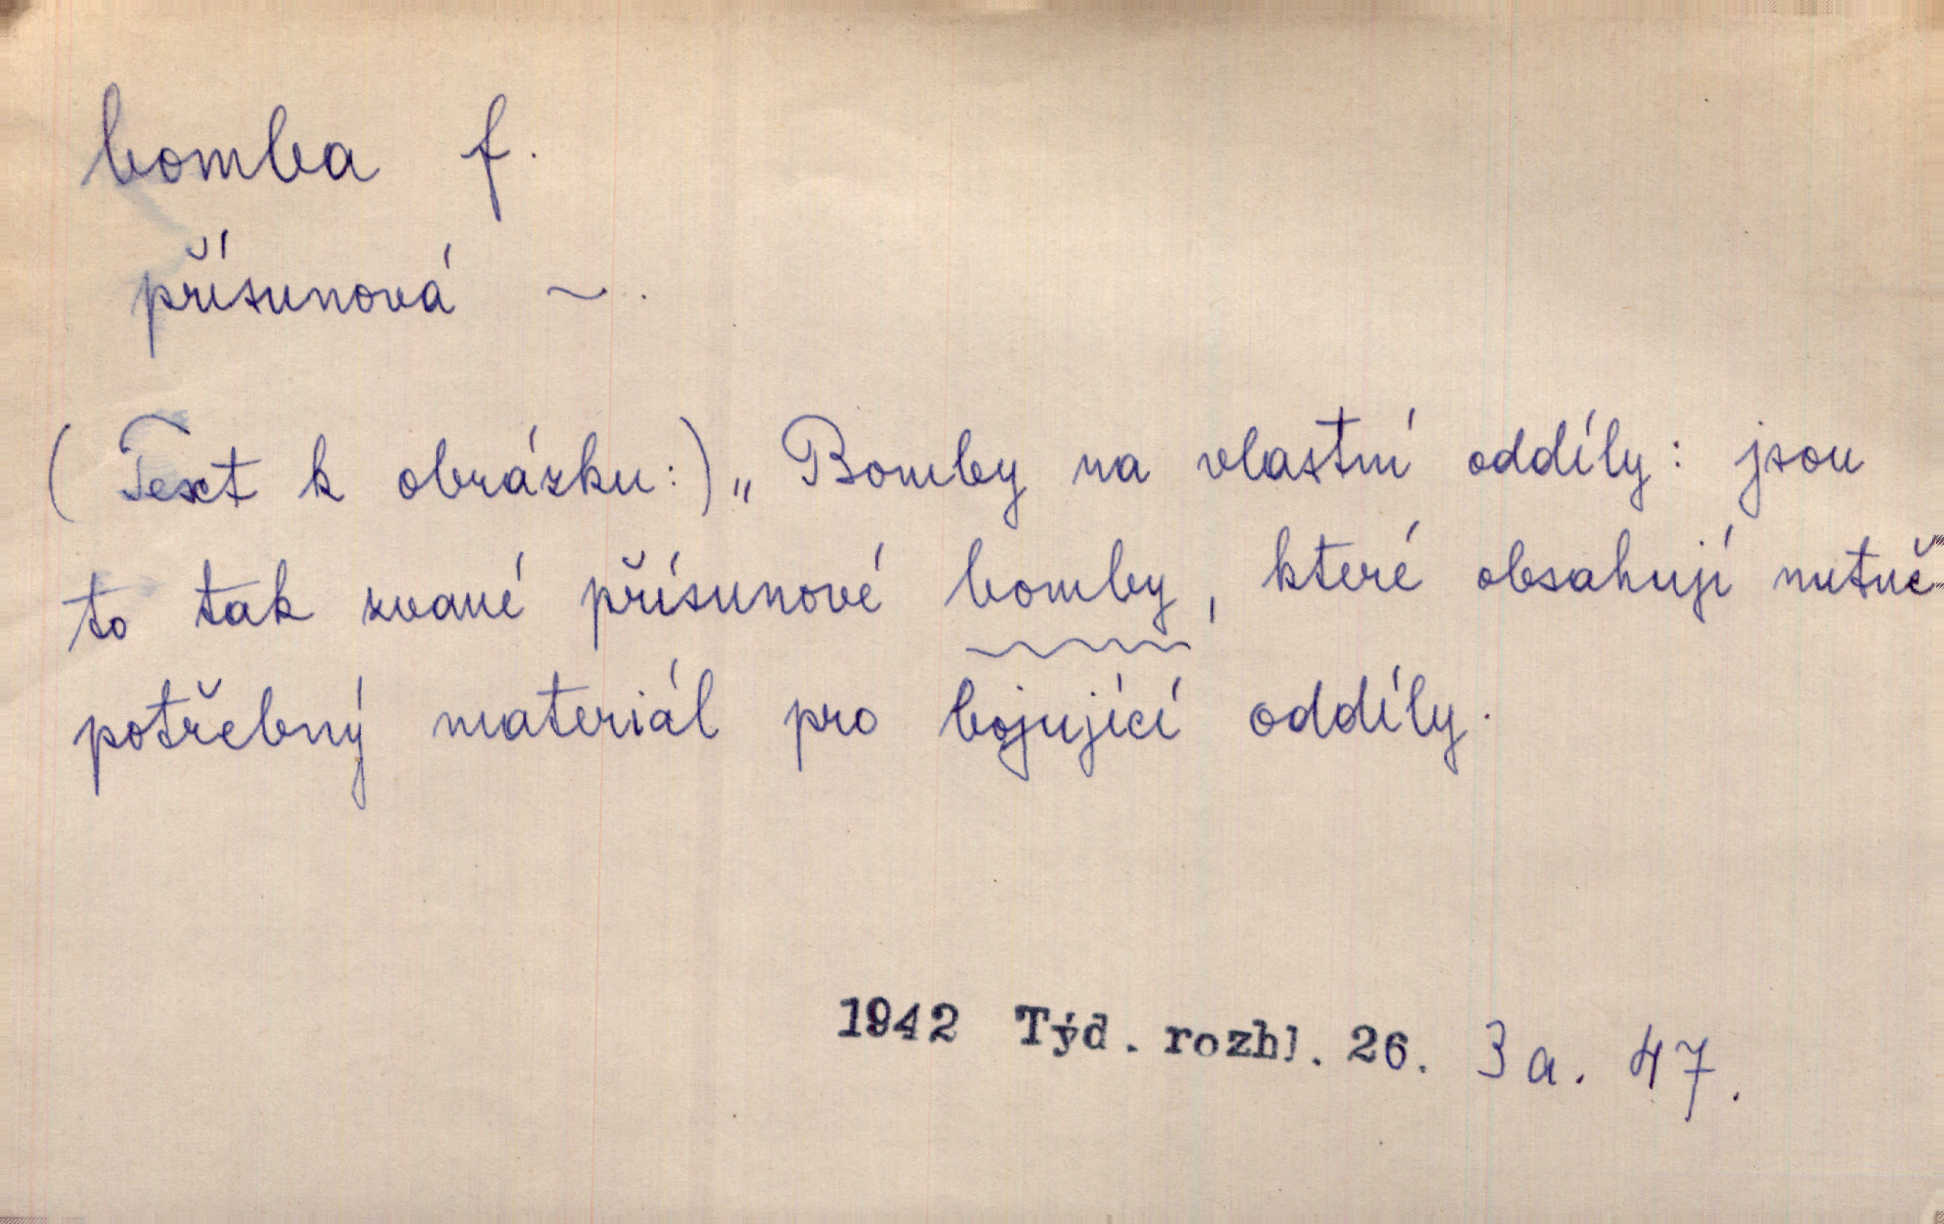 bomba f.
přísunová ~.
(Text k obrázku:) „Bomby na vlastní oddíly: jsou
to tak zvané přísunové bomby, které obsahují nutně
potřebný materiál pro bojující oddíly.
1942 Týd. rozhl. 26. 3a. 47.